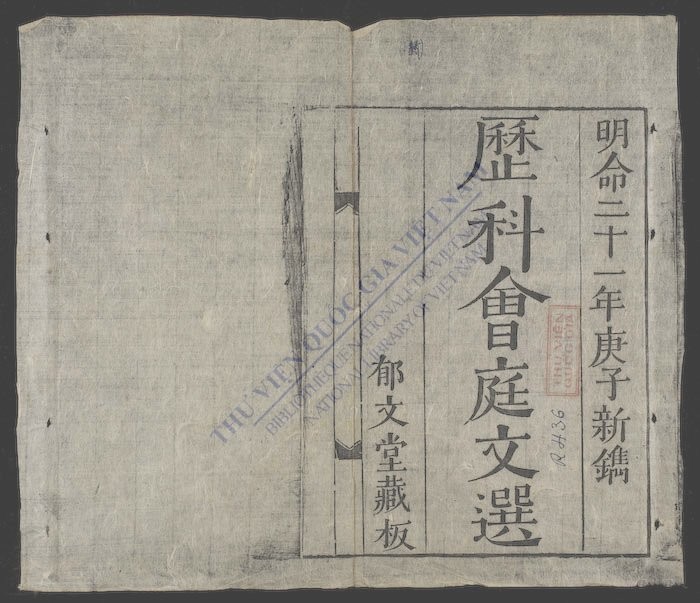 明命二十一年庚子新鐫
歷科會庭文選
郁文堂藏板
THƯ VIỆN QUỐC GIA VIỆT NAM
BIBLIOTHÈQUE NATIONALE DU VIETNAM
NATIONAL LIBRARY OF VIETNAM
THU VIEN
QUOC GIA
R.H36